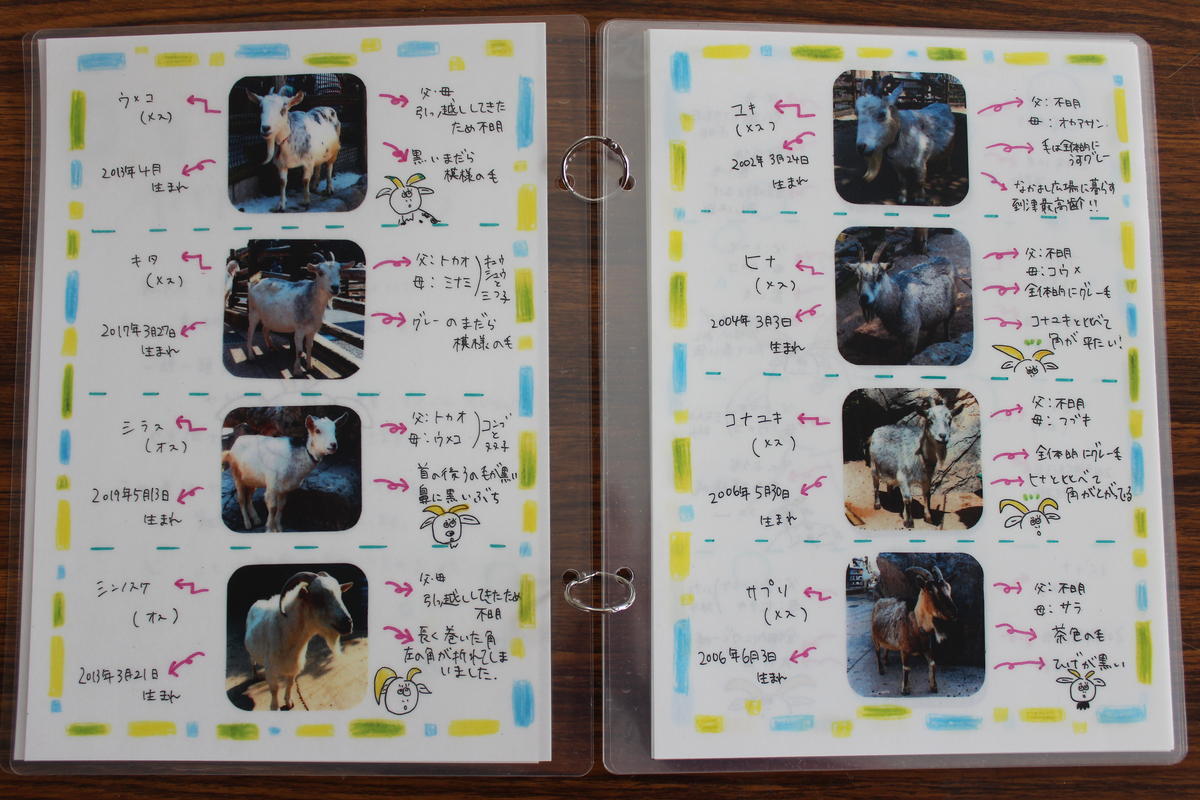 ウメコ
(メス)
2013年4月
生まれ
父・母
引っ越ししてきた
ため不明
黒いまだら
模様の毛
キタ
(メス)
2017年3月27日
生まれ
父:トカオ
母:ミナミ
キュウ
シュウと
三つ子
グレーのまだら
模様の毛
シラス
(オス)
2019年5月13日
生まれ
父:トカオ
母:ウメコ
コンブ
と
双子
首の後ろの毛が黒い
鼻に黒いぶち
シンノスケ
(オス)
2013年3月21日
生まれ
父・母
引っ越ししてきたため
不明
長く巻いた角
左の角が折れてしま
いました。
ユキ
(メス)
2002年3月24日
生まれ
父:不明
母:オカアサン
毛は全体的に
うすグレー
なかよし広場に暮らす
到津最高齢!!
ヒナ
(メス)
2004年3月3日
生まれ
父:不明
母:コウメ
全体的にグレー毛
コナユキとくらべて
角が平たい!
コナユキ
(メス)
2006年5月30日
生まれ
父:不明
母:フブキ
全体的にグレー毛
ヒナとくらべて
角がとがってる
サプリ
(メス)
2006年6月3日
生まれ
父:不明
母:サラ
茶色の毛
ひげが黒い